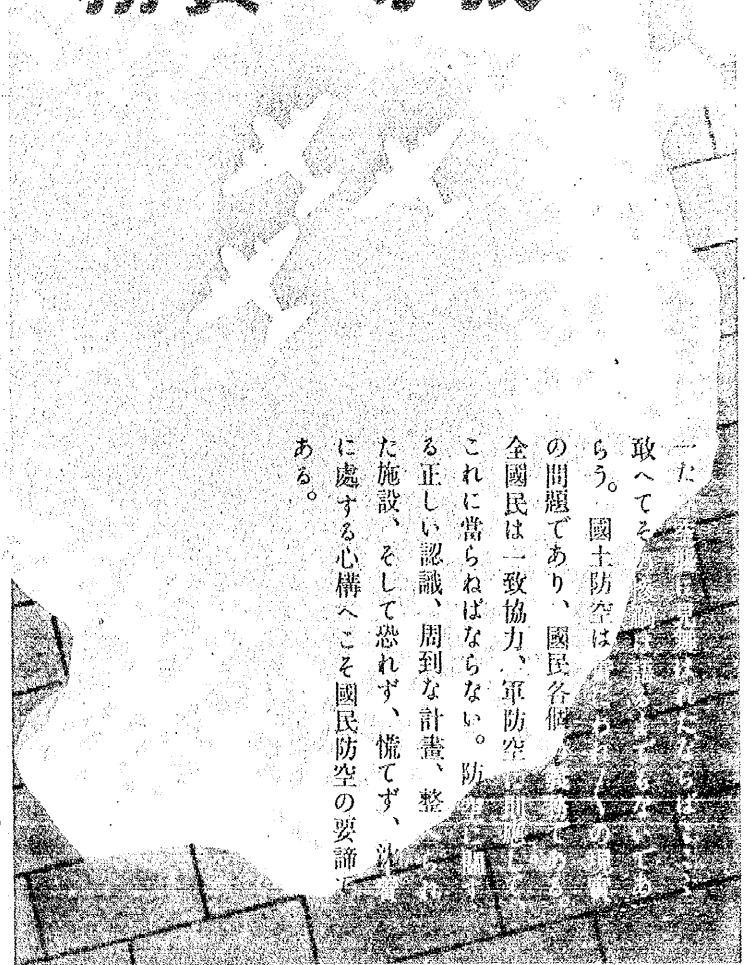 一た
敢へてそ でもないであ
らう。國土防空は われ〱の
の問題であり、國民各個 務である。
全國民は一致協力、軍防空 即應して、
これに當らねばならない。防空に關す
る正しい認識、周到な計畫、整 られ
た施設、そして恐れず、慌てず、沈着
に處する心構へこそ國民防空の要諦で
ある。